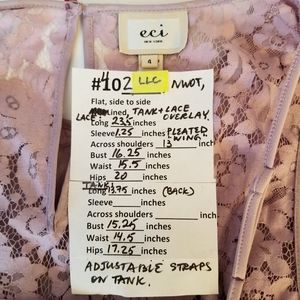 eci
NEW YORK
4
#402 LLC NWOT,
Flat, side to side
Lined, TANK + LACE
LACE OVERLAY.
Long 23.5 inches
Sleeve 1.25 inches PLEATED
Across shoulders 13 inch WING
Bust 16.25 inches
Waist 15.5 inches
Hips 20 inches
TANK:
Long 13.75 inches (BACK)
Sleeve______inches
Across shoulders______inch
Bust 15.25 inches
Waist 14.5 inches
Hips 17.25 inches
ADJUSTABLE STRAPS
ON TANK.